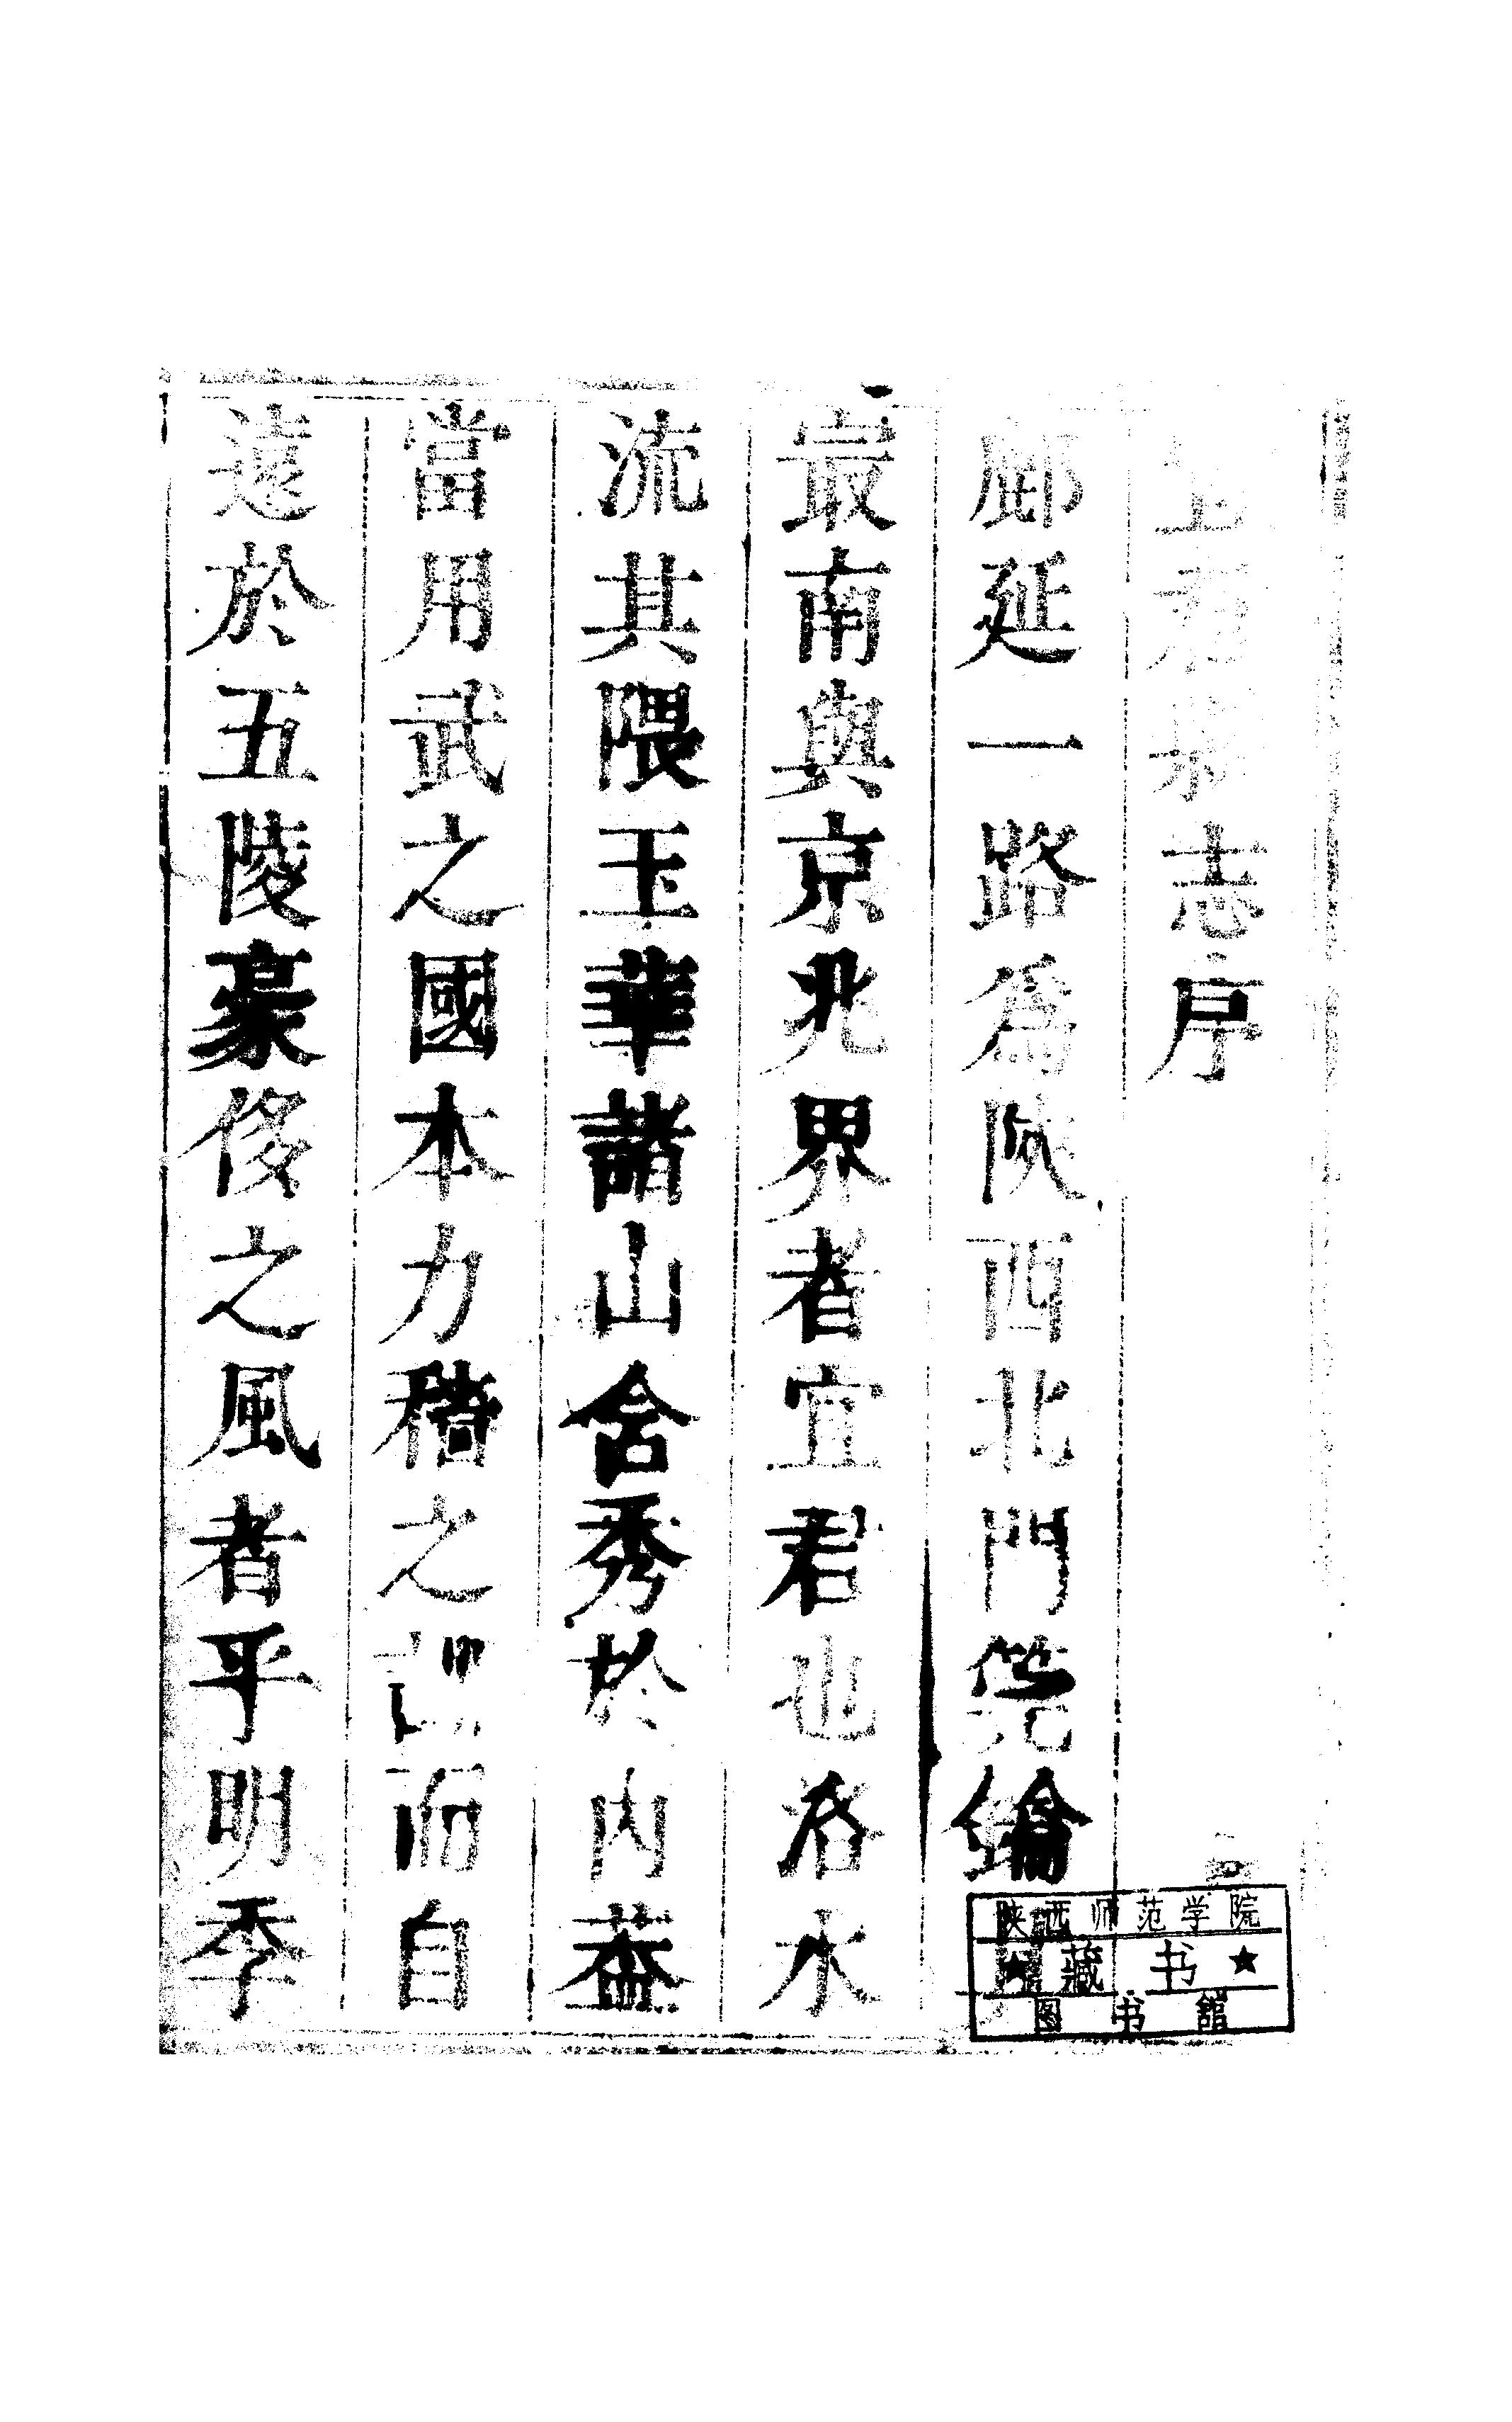 宜君縣志序
鄜延一路爲陝西北門筦鑰
最南與京兆界者宜君也洛水
流其隈玉華諸山含秀於內葢
當用武之國本力穡之而自
遠於五陵豪侈之風者乎明季
陕西师范学院
藏书
图书館